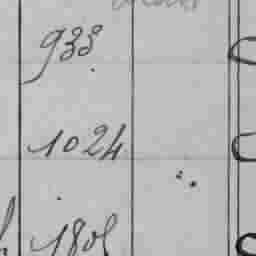 933
1024
1805